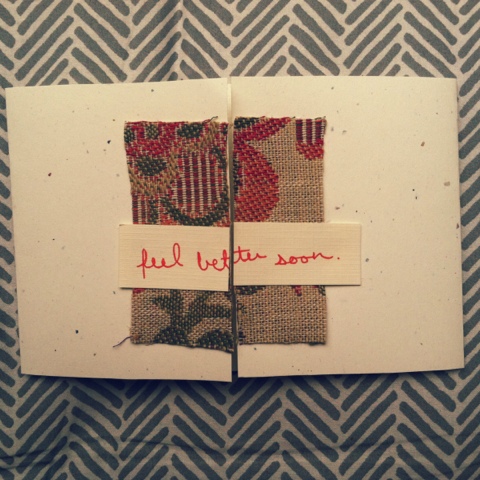 feel better soon.